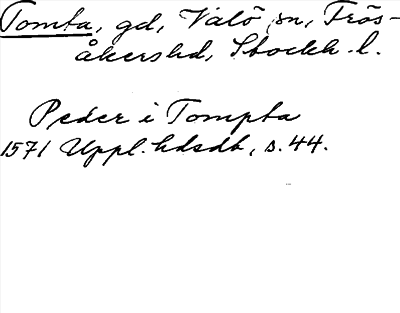 Tomta, gd, Valö sn, Frös-
åkershd, Stockh. l.
Peder i Tompta
1571 Uppl. hdsdb, s. 44.